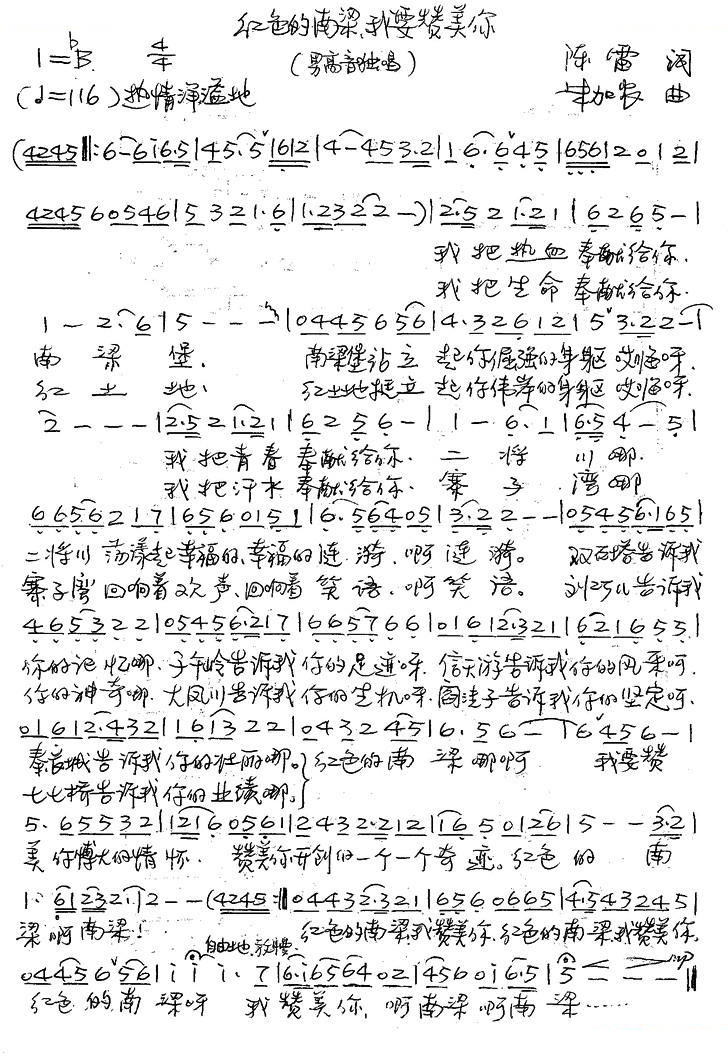 红色的南梁,我要赞美你
1=♭B 4/4 (男高音独唱) 陈雷 词
(♩=116) 热情洋溢地 加农 曲
(4245‖:6-6i6·5|45·5ˇ612|4-453·2|1 6·6ˇ45|656120|2|
424560546|5321·6|1·2322-)|2·521·21|6265-|
我把热血奉献给你.
我把生命奉献给你.
1-2·6|5---|04456 56|4·326 12|5ˇ3·22-|
南梁堡. 南梁堡站立起你倔强的身躯 哎嗨呀.
红土地. 红土地挺立起你伟岸的身躯 哎嗨呀.
2---|2·521·21|6256-|1-6·1|6·54-5|
我把青春奉献给你. 二将川哪.
我把汗水奉献给你. 寨子湾哪
66562 17|6560151|6·56405|3·22--|05456·165|
二将川荡漾起幸福的,幸福的涟漪.啊涟漪。 双石塔告诉我
寨子湾回响着欢声,回响着笑语.啊笑语。 刘巧儿告诉我
4653 22|05456·217|665766|01612·321|621655|
你的记忆哪.子午岭告诉我你的足迹呀.信天游告诉我你的风采呵.
你的神奇哪.大凤川告诉我你的生机呀.阎洼子告诉我你的坚定呀.
01612·432|161322|0432 45|6·56-|6ˇ456-|
奉音城告诉我你的壮丽哪。红色的南梁哪啊 我要赞
七七桥告诉我你的业绩哪。
5·65532|12160561|2432·212|16 50126|5--3·2|
美你博大的情怀. 赞美你开创的一个一个奇迹。红色的南
1·61232·12--(4245:‖04432·321|6560665|4·5432451|
梁啊南梁! 红色的南梁我赞美你,红色的南梁我赞美你,
自由地 放慢
04456ˇ56|i i i·7|6·i656402|4560i6·5|5---‖
红色的南梁呀 我赞美你,啊南梁啊南梁……